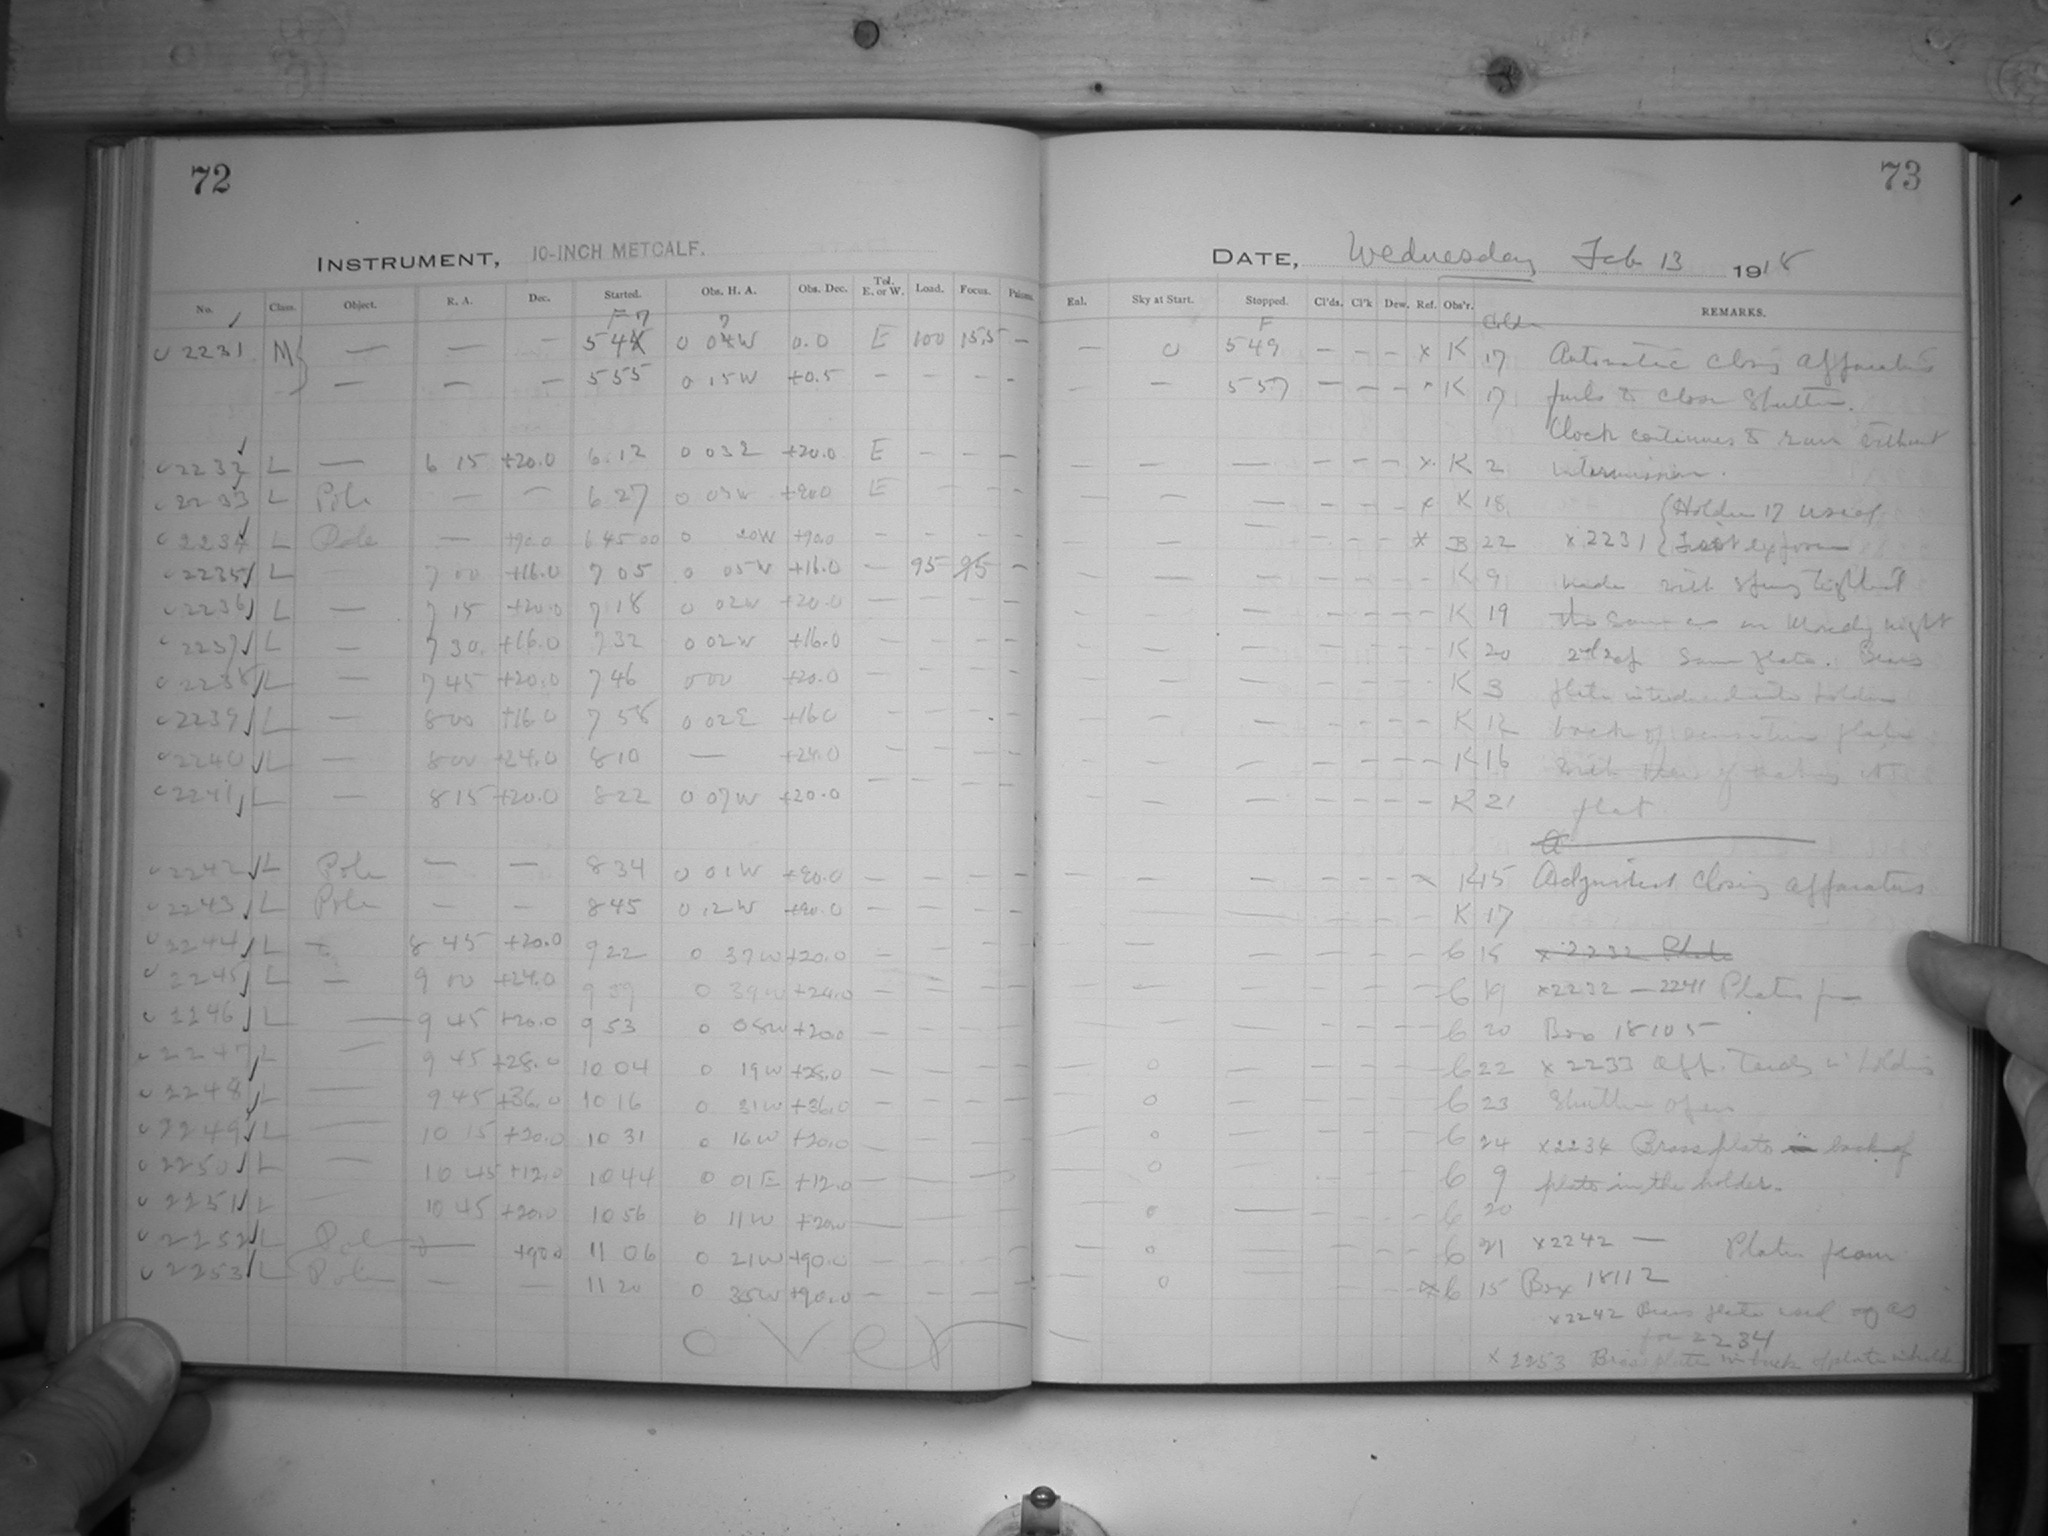 72
INSTRUMENT, 10-INCH METCALF.
No. Class. Object. R. A. Dec. Started. Obs. H. A. Obs. Dec. Tel. E. or W. Load. Focus.
F 7 7
2231 M — — — 5 44 0 04W 0.0 E 100 15.5 —
— — — 5 55 0 15W +0.5 — — — —
2232 L — 6 15 +20.0 6 12 0 03E +20.0 E — — —
2233 L Pole — — 6 27 0 03W +90.0 E — — —
2234 L Pole — +90.0 6 45 00 0 20W +90.0 — — — —
2235 L 7 00 +16.0 7 05 0 05W +16.0 — 95 95 —
2236 L — 7 15 +20.0 7 18 0 02W +20.0 — — — —
2237 L — 7 30 +16.0 7 32 0 02W +16.0 — — — —
2238 L — 7 45 +20.0 7 46 0 00 +20.0 — — — —
2239 L — 8 00 +16.0 7 58 0 02E +16.0 — — — —
2240 L — 8 00 +24.0 8 10 — +24.0 — — — —
2241 L — 8 15 +20.0 8 22 0 07W +20.0 — — — —
2242 L Pole — — 8 34 0 01W +90.0 — — — —
2243 L Pole — — 8 45 0 12W +90.0 — — — —
2244 L — 8 45 +20.0 9 22 0 37W +20.0 — — — —
2245 L — 9 00 +24.0 9 39W +24.0 — — — —
2246 L — 9 45 +20.0 9 53 0 08W +20.0 — — — —
2247 L — 9 45 +28.0 10 04 0 19W +28.0 — — — —
2248 L — 9 45 +36.0 10 16 0 31W +36.0 — — — —
2249 L — 10 15 +20.0 10 31 0 16W +20.0 — — — —
2250 L — 10 45 +12.0 10 44 0 01E +12.0 — — — —
2251 L — 10 45 +20.0 10 56 0 11W +20.0 — — — —
2252 L Pole — +90.0 11 06 0 21W +90.0 — — — —
2253 L Pole — — 11 20 0 35W +90.0 — — — —
over
73
DATE, Wednesday Feb 13 1918
Enl. Sky at Start. Stopped. Cl'ds. Cl'k Dew. Ref. Obs'r. REMARKS.
F
— 0 5 49 — — — x K 17 Automatic closing apparatus
— — 5 57 — — — K 17 fails to close shutter.
Clock continues to run without
— — — — — — x K 2 intermission.
— — — — — — x K 18 Holder 17 used
— — — — — x B 22 x 2231 First exposure
— — — — — — K 9 made with spring tight
— — — — — — K 19 the same as on Monday night
— — — — — — K 20 2d of same plate. Brass
— — — — — — K 3 plate introduced into holder
— — — — — — K 12 back of sensitive plate
— — — — — — K 16 with idea of making it
— — — — — — K 21 flat
— — — — — x K 15 Adjusted closing apparatus
— — K 17
— — — — — — 6 15 x 2232 Plate
— — — — — — 6 19 x2232 — 2241 Plates from
— — — — — — 6 20 Box 18105
— 0 — — — — 6 22 x 2233 App. Tends in holding
— 0 — — — — 6 23 Shutter open
— 0 — — — — 6 24 x2234 Brass plate in back of
— 0 — 6 9 plate in the holder.
— 0 — — — — 6 20
— 0 — — — — 6 21 x2242 — Plates from
— 0 — — — — x 6 15 Box 18112
x2242 Brass plate used as
for 2234
x 2253 Brass plate in back of plate in hold